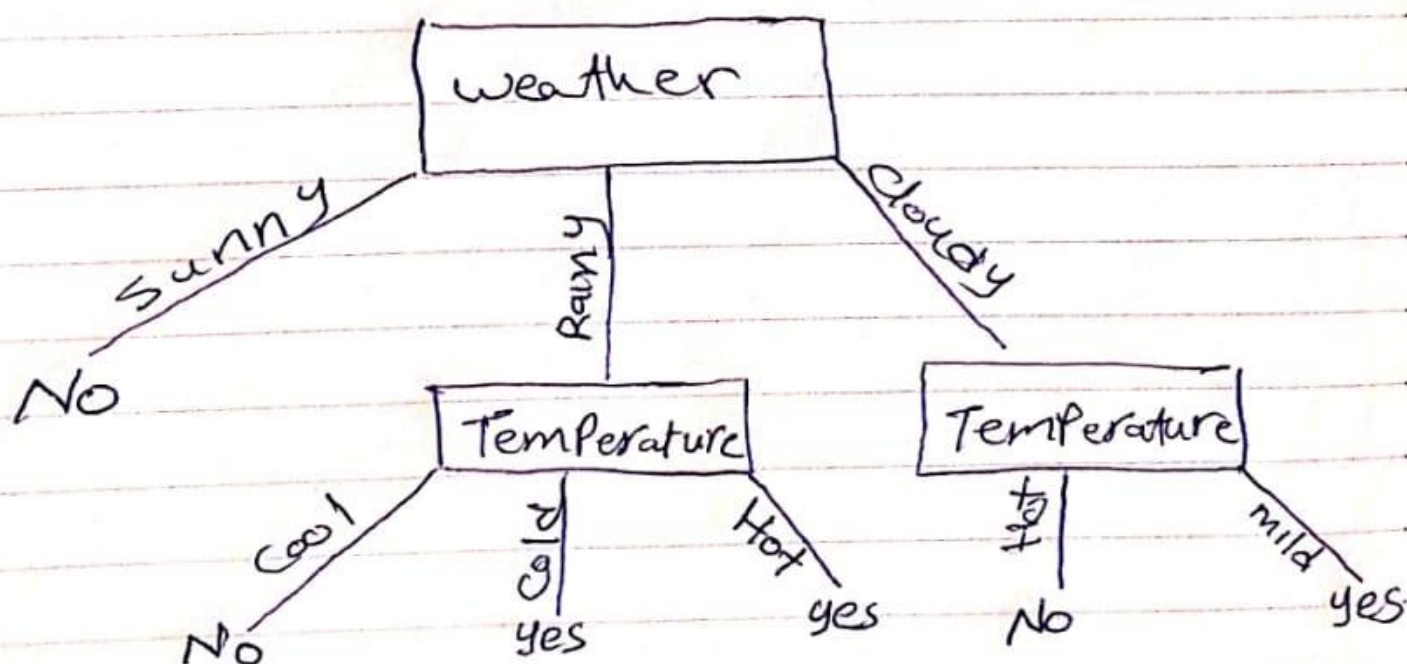 weather
Sunny
Rainy
Cloudy
No
Temperature
Temperature
Cool
Cold
Hot
Hot
mild
No
yes
yes
No
yes